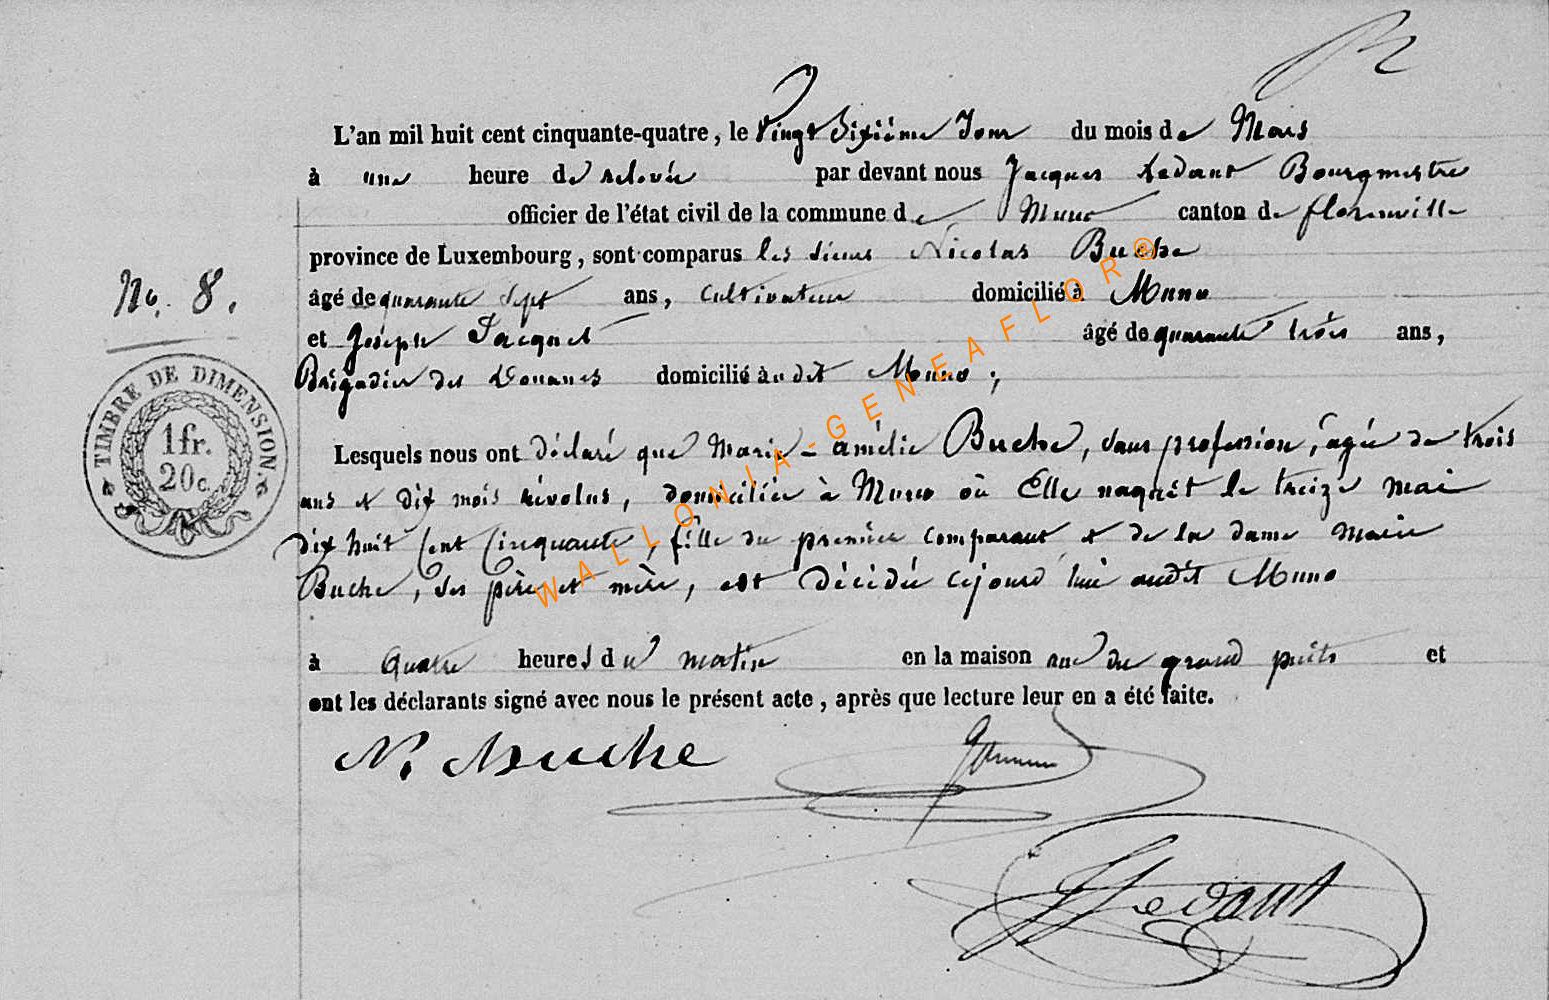 L'an mil huit cent cinquante-quatre, le Vingt Sixième Jour du mois de Mars
à une heure de relevée par devant nous Jacques Ledant Bourgmestre
officier de l'état civil de la commune de Muno canton de florenville
province de Luxembourg, sont comparus les sieurs Nicolas Buche
No. 8.
âgé de quarante Sept ans, Cultivateur domicilié à Muno
et Joseph Jacquet âgé de quarante trois ans,
Brigadier des Douanes domicilié audit Muno;
TIMBRE DE DIMENSION.
1fr.
20c.
Lesquels nous ont déclaré que Marie-amélie Buche, sans profession, agée de trois
ans et dix mois révolus, domiciliée à Muno où Elle naquêt le treize mai
dix huit Cent Cinquante, fille du premier Comparant et de la dame Marie
Buche, ses père et mère, est décédée cejourd'hui audit Muno
à Quatre heures du matin en la maison rue du grand puits et
ont les déclarants signé avec nous le présent acte, après que lecture leur en a été faite.
N. Buche
Ledant
WALLONIA-GENEAFLOR®